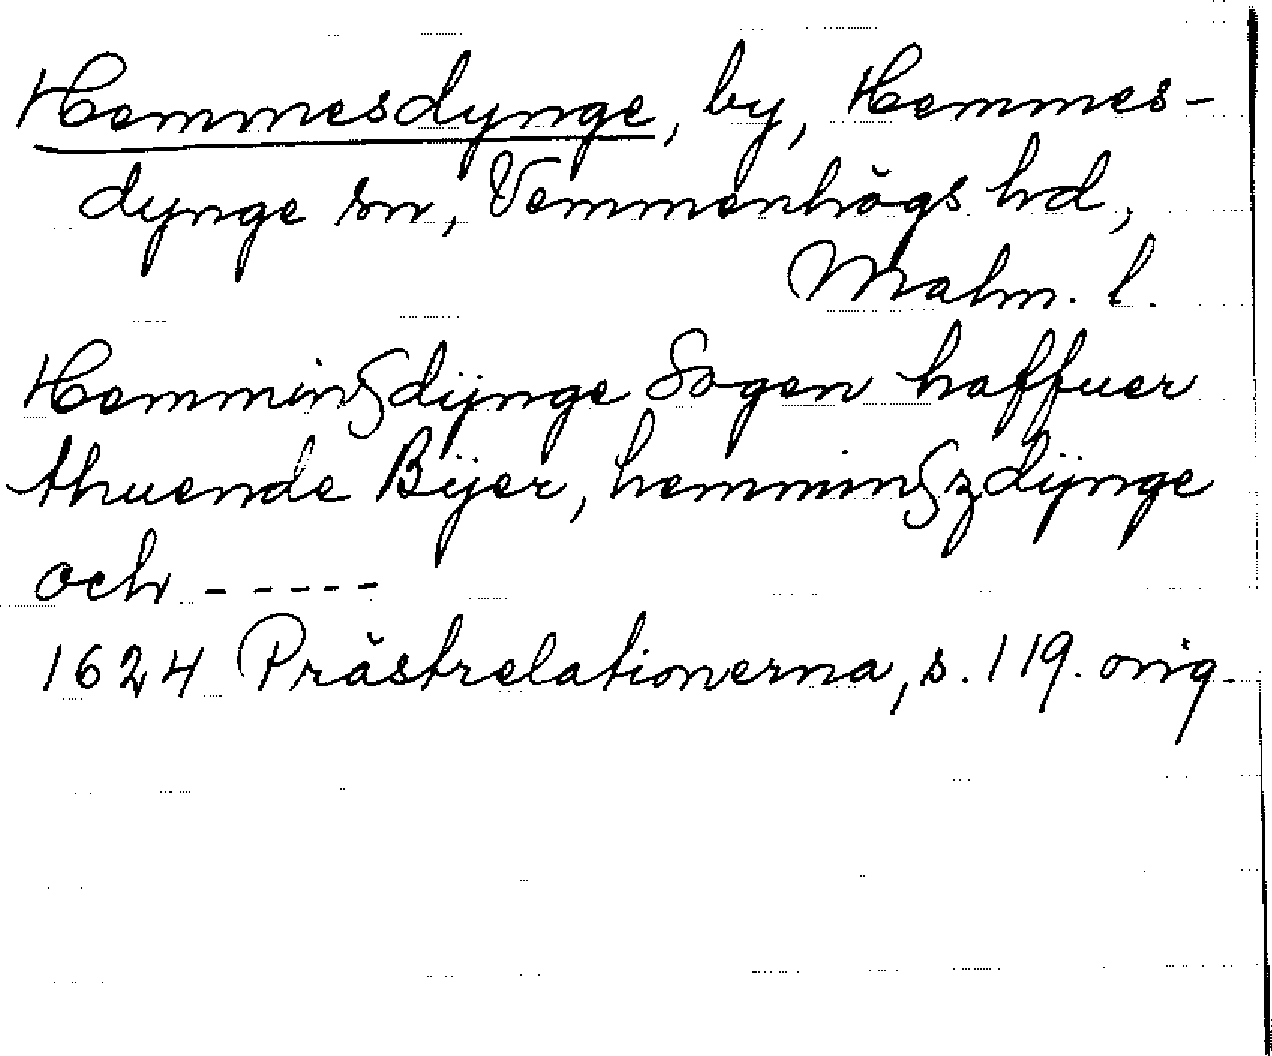 Hemmesdynge, by, Hemmes-
dynge sn, Vemmenhögs hd,
Malm. l.
Hemmingsdÿnge Sogen haffuer
thuende Bÿer, hemmingszdÿnge
och -----
1624 Prästrelationerna, s. 119. orig.